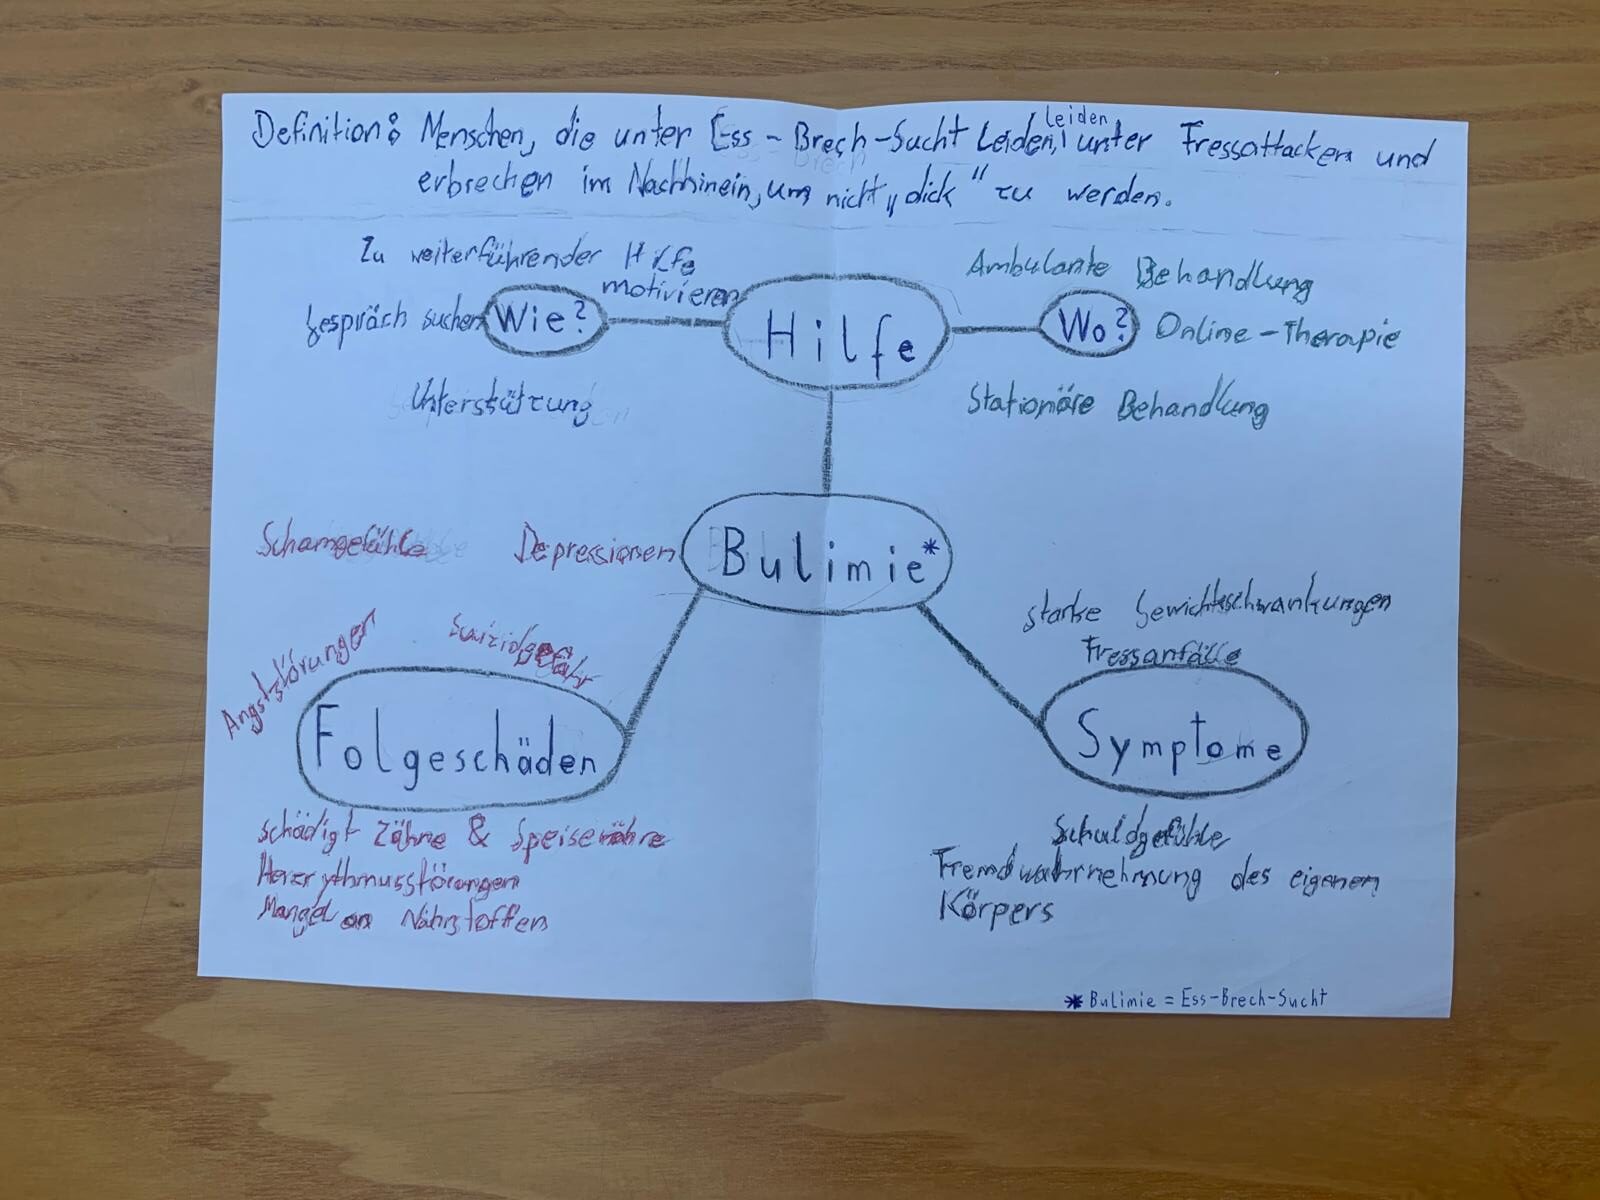 Definition: Menschen, die unter Ess-Brech-Sucht Leiden, leiden unter Fressattacken und
erbrechen im Nachhinein, um nicht „dick" zu werden.
Zu weiterführender Hilfe
motivieren
Gespräch suchen
Wie?
Unterstützung
Hilfe
Ambulante Behandlung
Wo?
Online-Therapie
Stationäre Behandlung
Schamgefühle
Depressionen
Bulimie*
Angststörungen
Suizidgefahr
Folgeschäden
schädigt Zähne & Speiseröhre
Herzrythmusstörungen
Mangel an Nährstoffen
starke Gewichtsschwankungen
Fressanfälle
Symptome
Schuldgefühle
Fremdwahrnehmung des eigenen
Körpers
* Bulimie = Ess-Brech-Sucht